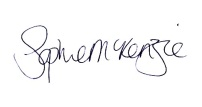 Sophie McKenzie